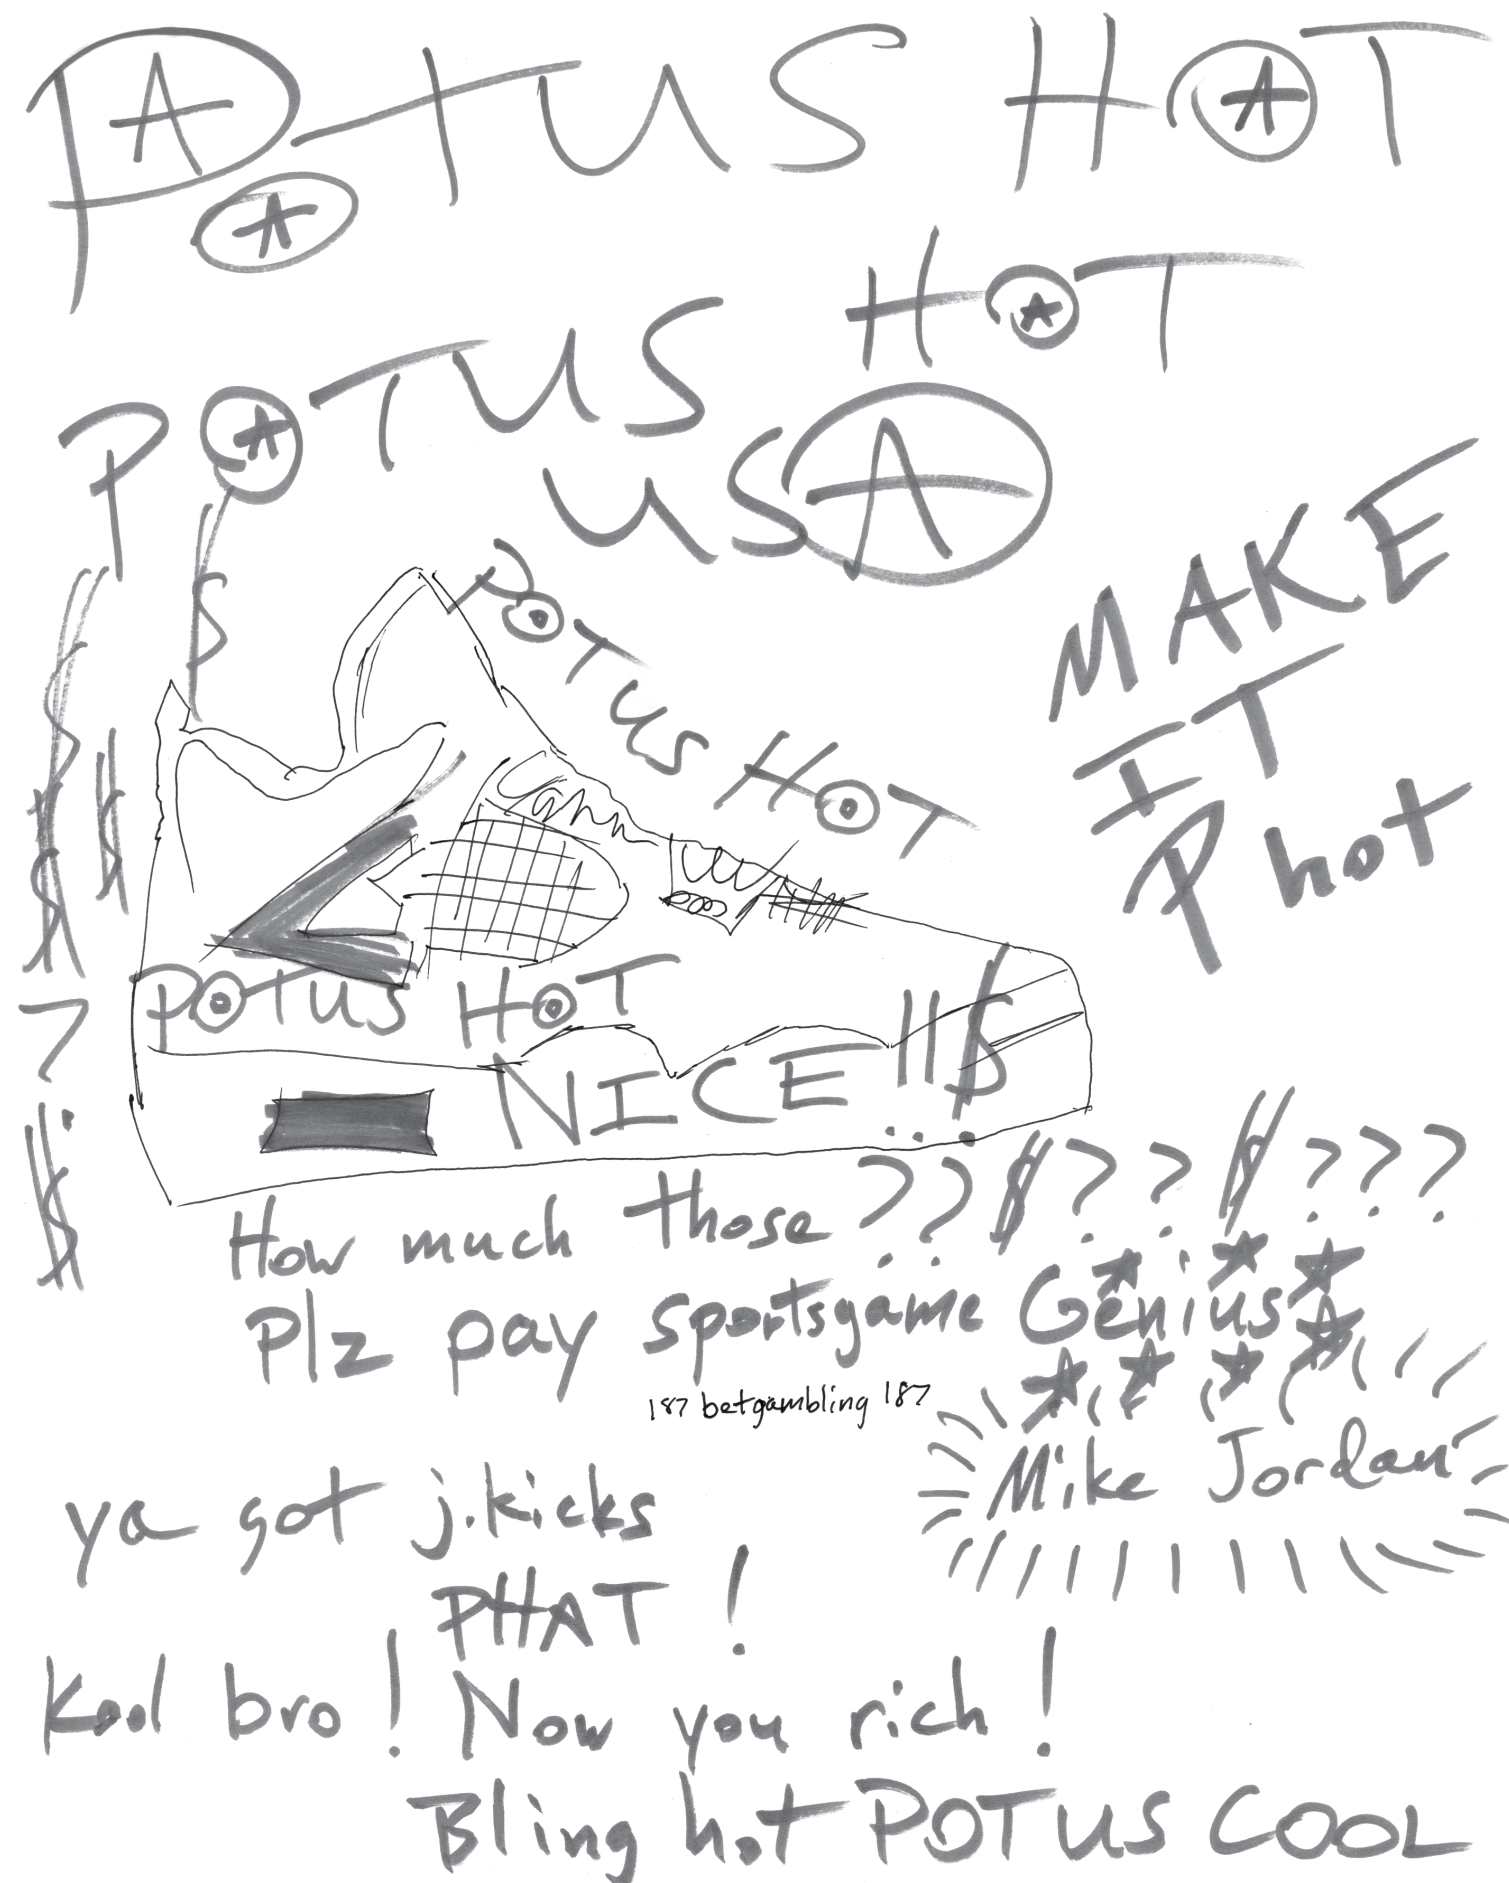 POTUS HOT
POTUS HOT
USA
POTUS HOT
MAKE
IT
Phot
POTUS HOT
NICE !!$
How much those ??$??$???
Plz pay sportsgame Genius
187 betgambling 187
Mike Jordan
ya got j.kicks
PHAT !
Kool bro ! Now you rich !
Bling hot POTUS COOL